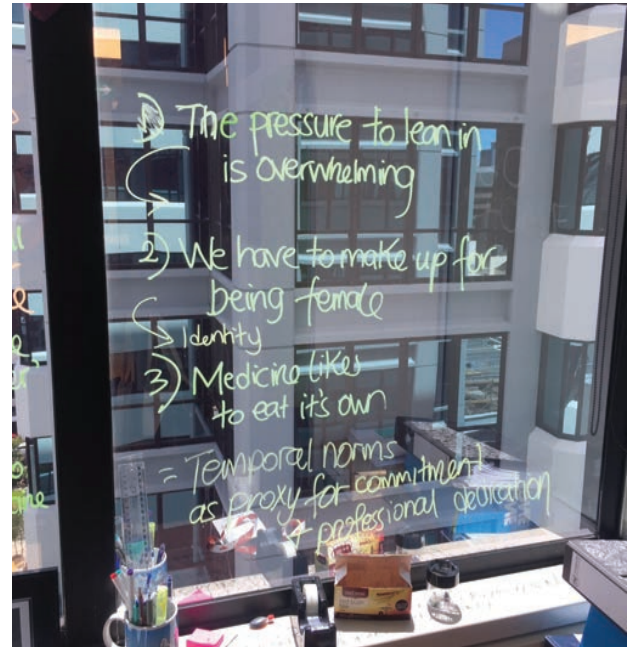 1) The pressure to lean in
is overwhelming
2) We have to make up for
being female
Identity
3) Medicine likes
to eat it's own
= Temporal norms
as proxy for commitment
+ professional dedication